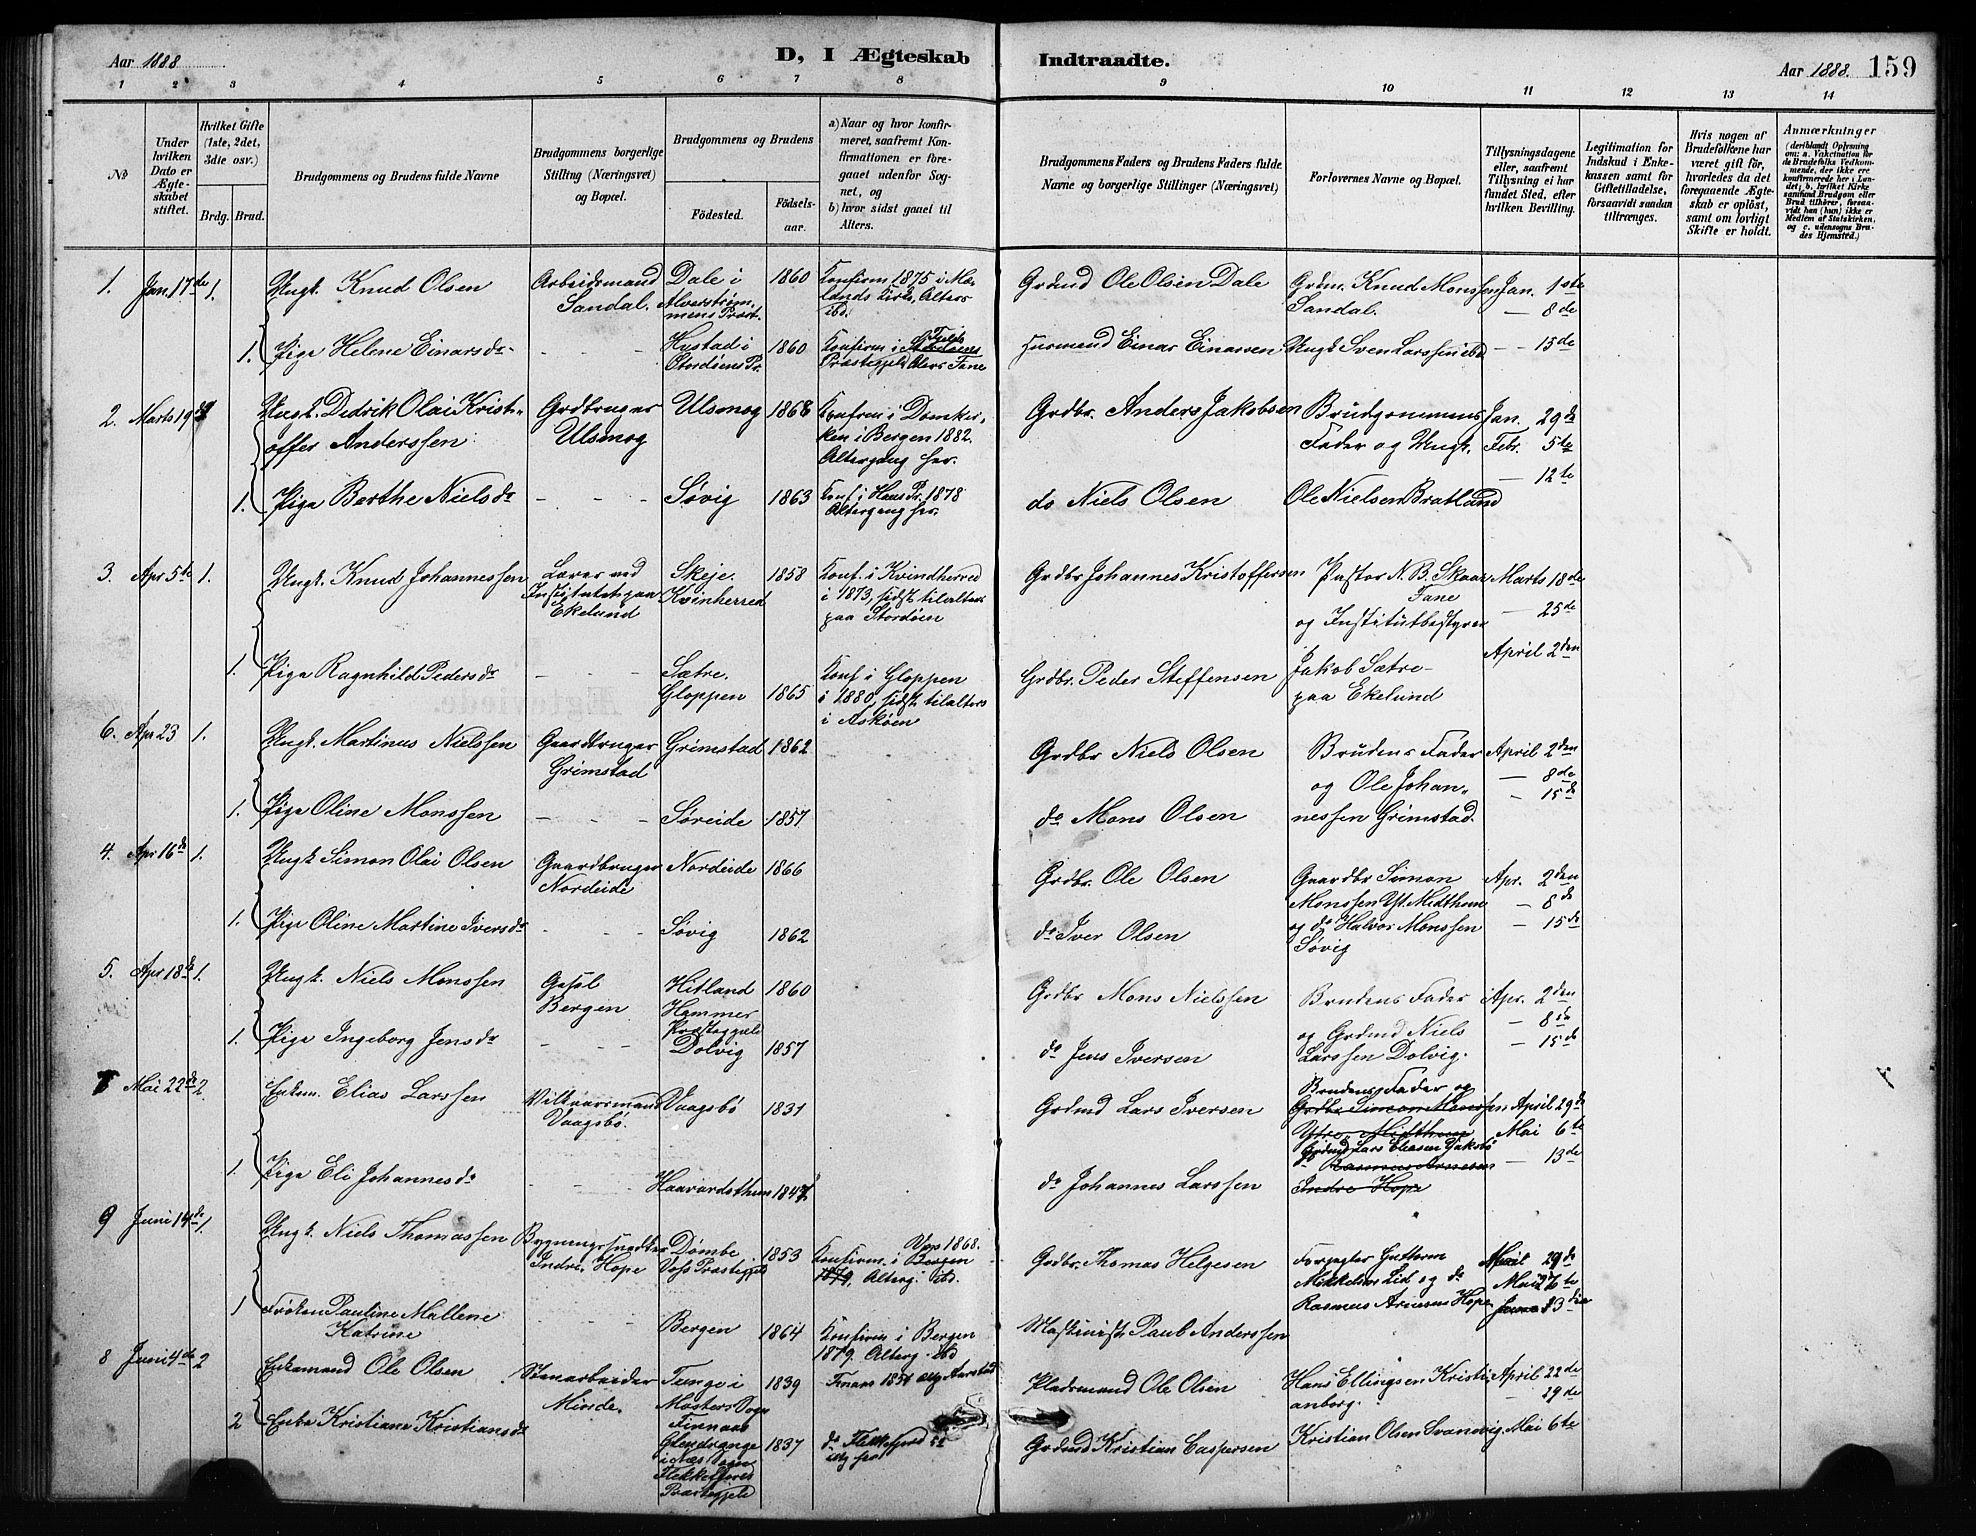 Aar 1888
D, I Ægteskab
Indtraadte.
Aar 1888. 159
1 2 3 4 5 6 7 8
9 10 11 12 13 14
No
Under hvilken Dato er Ægteskabet stiftet.
Hvilket Gifte (1ste, 2det, 3die osv.)
Brdg. Brud.
Brudgommens og Brudens fulde Navne
Brudgommens borgerlige Stilling (Næringsvei) og Bopæl.
Brudgommens og Brudens
Fødested.
Fødselsaar.
a) Naar og hvor konfirmeret, saafremt Konfirmationen er foregaaet udenfor Sognet, og
b) hvor sidst gaaet til Alters.
Brudgommens Faders og Brudens Faders fulde Navne og borgerlige Stillinger (Næringsvei)
Forlovernes Navne og Bopæl.
Tillysningsdagene eller, saafremt Tillysning ei har fundet Sted, efter hvilken Bevilling.
Legitimation for Indskud i Enkekassen samt for Giftetilladelse, forsaavidt saadan tiltrænges.
Hvis nogen af Brudefolkene har været gift før, hvorledes da det foregaaende Ægteskab er opløst, samt om lovligt Skifte er holdt.
Anmærkninger
(deriblandt Oplysning om: a. Vakcination for de Brudefolks Vedkommende, der ikke ere konfirmerede her i Landet; b. hvilket Kirkesamfund Brudgom eller Brud tilhører, forsaavidt han (hun) ikke er Medlem af Statskirken, og c. udensogns Brudes Hjemsted.)
1. Jan. 17de 1. Ungk. Knud Olsen
Arbeidsmand Sandal.
Dale i Alverstrømmens Præst. 1860
Konfirm. 1875 i Mælands Kirke, Alters ibd.
Grdmd Ole Olsen Dale
Grdm. Knud Monssen Sandal.
Jan. 1ste
— 8de
1. Pige Helene Einarsdr
Hystad i Stordøens Pr. 1860
Konfirm. i Fjelds Præstegjeld, Alters Fane
Husmand Einar Einarsen
Ungk. Sven Larssen ibd
— 15de
2. Marts 19de Ungk. Didrik Olai Kristoffer Anderssen
Grdbruger Ulsmog
Ulsmog 1868
Konfirm. i Domkirken i Bergen 1882. Altergang her.
Grdbr. Anders Jakobsen
Brudgommens Fader og Ungk.
Jan. 29de
Febr. 5te
— 12te
1. Pige Berthe Nielsdr
Søvig 1863
Konf. i Haus Pr. 1878 Altergang her.
do Niels Olsen
Ole Nielsen Bratland
3. Apr 5te 1. Ungk. Knud Johannessen
Lærer ved Institutet paa Ekelund
Skeje. Kvinherred 1858
Konf. i Kvindherred i 1873, sidst tilalters paa Stordøen
Grdbr. Johannes Kristoffersen
Pastor N. B. Skaar Fane
og Institutbestyrer
Marts 18de
— 25de
April 2den
1. Pige Ragnhild Pedersdr
Sætre. Gloppen 1865
Konf i Gloppen i 1880, sidst tilalters i Askøen
Grdbr. Peder Steffensen
Jakob Sætre
paa Ekelund
6. Apr 23 1. Ungk. Martinus Nielssen
Gaardbruger Grimstad
Grimstad 1862
Grdbr Niels Olsen
Brudens Fader og Ole Johannessen Grimstad.
April 2den
— 8de
— 15de
1. Pige Oline Monssen
Søreide 1857
do Mons Olsen
4. Apr 16de 1. Ungk Simon Olai Olsen
Gaardbruger Nordeide
Nordeide 1866
Grdbr. Ole Olsen
Gaardbr Simon Monssen Yt. Midthun og do Halvor Monssen Søvig
Apr. 2den
— 8de
— 15de
1. Pige Oline Martine Iversdr
Søvig 1862
do Iver Olsen
5. Apr 18de 1. Ungk. Niels Monssen
Gesel Bergen
Hitland Hammer Præstegjeld 1860
Grdbr Mons Nielssen
Brudens Fader og Grdmd Niels Larssen Dolvig.
Apr. 2den
— 8de
— 15de
1. Pige Ingeborg Jensdr
Dolvig 1857
do Jens Iversen
7 Mai 22de 2. Enkm. Elias Larssen
Vilkaarsmand Vaagsbø.
Vaagsbø 1831
Grdmd Lars Iversen
Brudens Fader og
Grdbr. Simon Monssen
Ytre Midthun
Grdmd Lars Eliasen
do Rasmus Arnesen
Indre Hope
April 29de
Mai 6te
— 13de
1. Pige Eli Johannesdr
Haavardsthun 1847
do Johannes Larssen
9 Juni 14de 1. Ungk. Niels Thomassen
Bygningssnedker Indre Hope
Dømbe Voss Præstegjeld 1853
Konfirm. i Bergen Voss 1868.
1879. Alterg. ibd.
Grdbr. Thomas Helgesen
Forpagter Guttorm Mikkelsen Lid og do Rasmus Arnesen Hope
April 29de
Mai 6te
1 Frøken Pauline Mallene Katrine
Bergen 1864
Konfirm i Bergen 1879. Alterg. ibd
Maskinist Paul Anderssen
8 Juni 4de 2 Enkemand Ole Olsen
Stenarbeider Minde.
Tunge i Mosters Sogn Finnaas 1839
Finaas 1851
Pladsmand Ole Olsen
Hans Ellingsen Kristianborg.
April 22de
— 29de
2 Enke Kristiane Kristiansdr
i Næs Sogn Flekkefjords Præstegjeld 1837
do Flekkefjord
Grdmd Kristian Caspersen
Kristian Olsen Svanevig.
Mai 6te